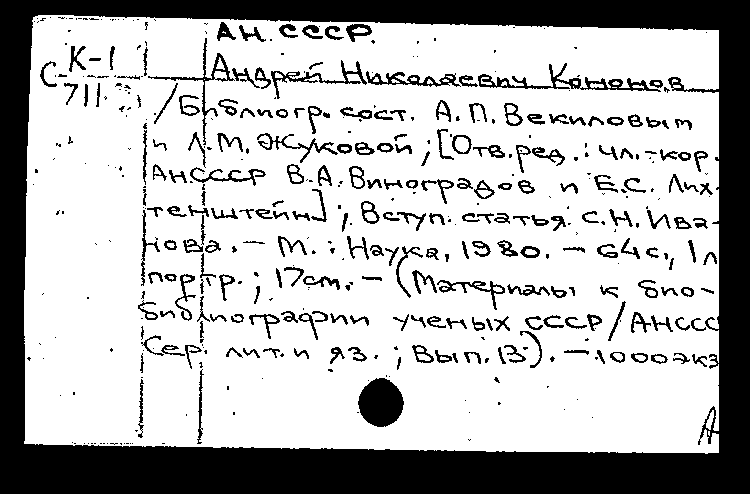 АН СССР.
К-1
С 711
Андрей Николаевич Кононов
/Библиогр. сост. А.П. Векиловым
и Л.М. Жуковой; [Отв. ред.: чл.-кор.
АНСССР В.А. Виноградов и Е.С. Лих-
тенштейн]; Вступ. статья С.Н. Ива-
нова. – М.: Наука, 1980. – 64с., 1л
портр.; 17см. – (Материалы к био-
библиографии ученых СССР/АНССС
Сер. лит. и яз.; Вып. 13). – 1000экз
А